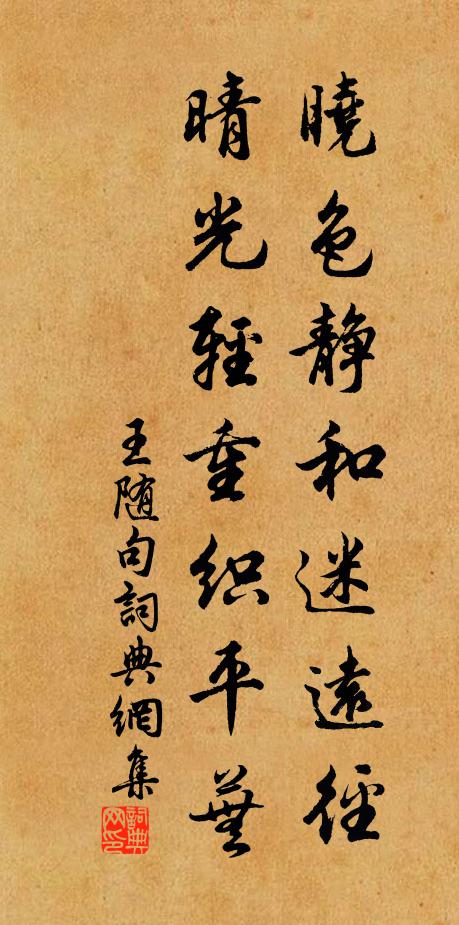 曉色靜和迷遠徑
晴光輕重織平蕪
王随句詞典網集
詞典网印